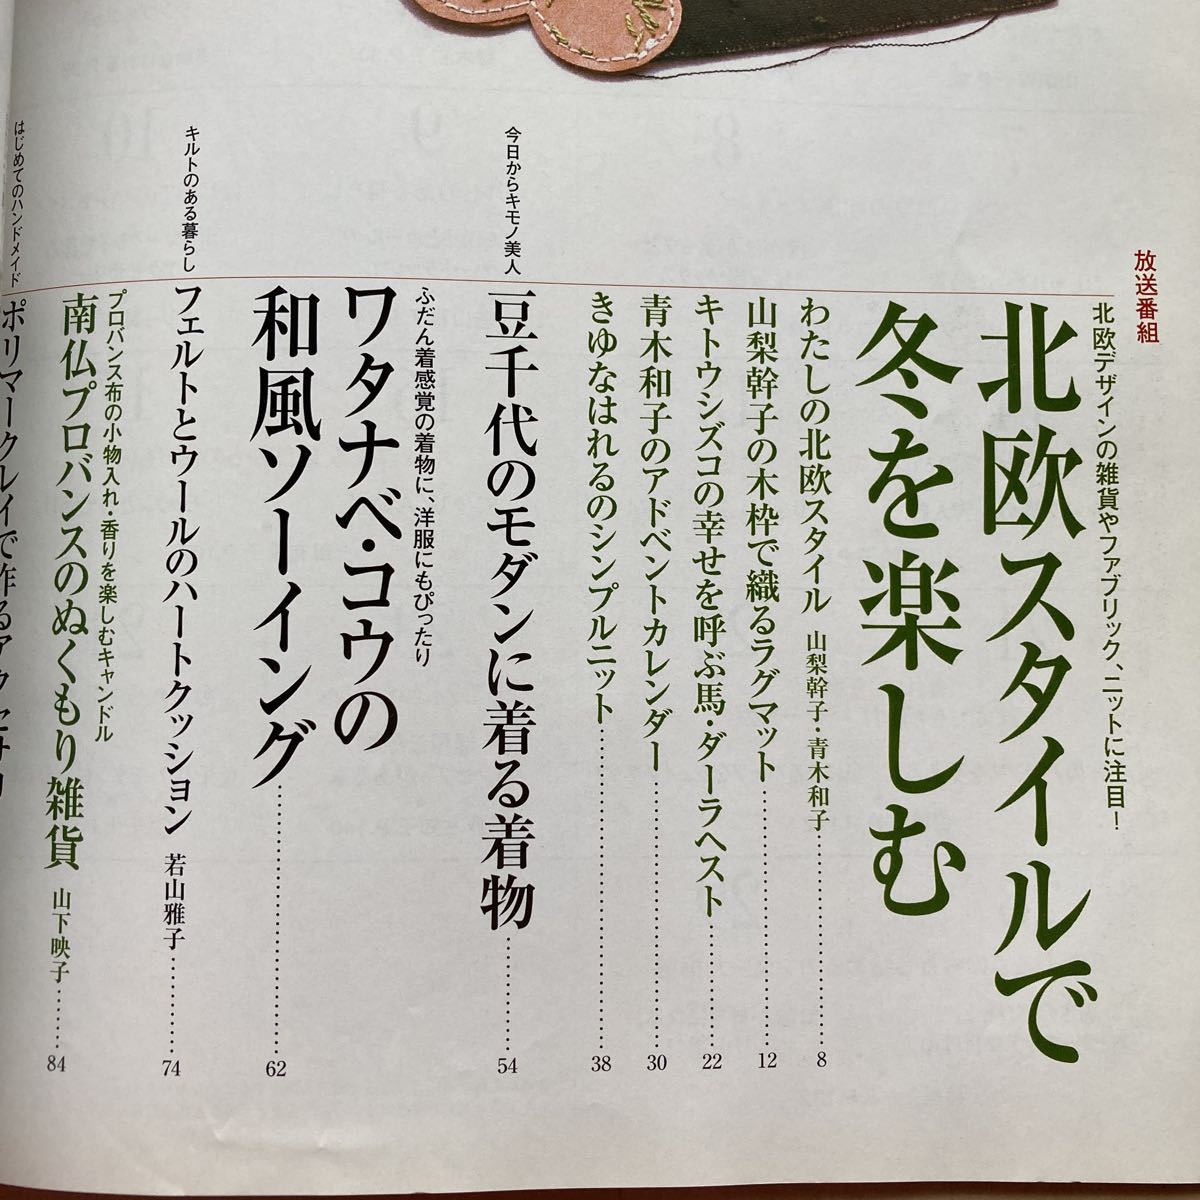 放送番組
北欧デザインの雑貨やファブリック、ニットに注目！
北欧スタイルで
冬を楽しむ
わたしの北欧スタイル 山梨幹子・青木和子 8
山梨幹子の木枠で織るラグマット 12
キトウシズコの幸せを呼ぶ馬・ダーラヘスト 22
青木和子のアドベントカレンダー 30
きゆなはれるのシンプルニット 38
今日からキモノ美人
豆千代のモダンに着る着物 54
ふだん着感覚の着物に、洋服にもぴったり
ワタナベ・コウの
和風ソーイング 62
キルトのある暮らし
フェルトとウールのハートクッション 若山雅子 74
プロバンス布の小物入れ・香りを楽しむキャンドル
南仏プロバンスのぬくもり雑貨 山下映子 84
はじめてのハンドメイド
ポリマークレイで作るアクセサリ